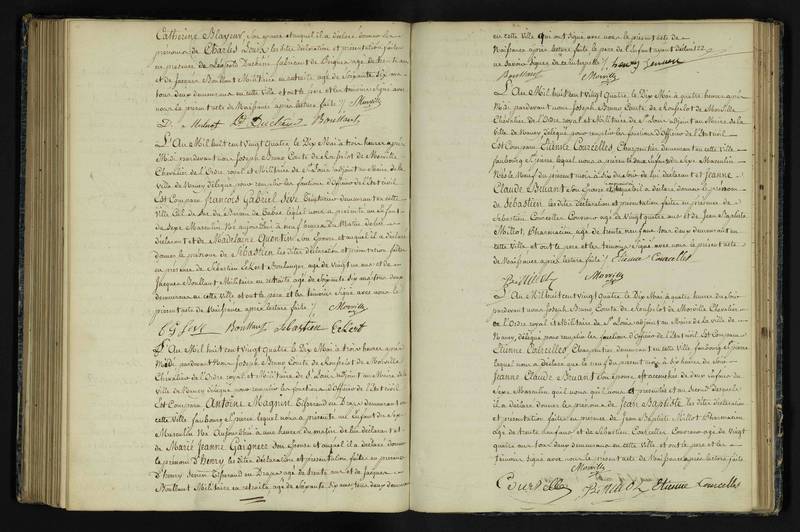 Catherine Blayeur, son épouse et auquel il a déclaré donner le
prénoms de Charles Louis les dites déclaration et présentation faites
en présence de Léopold Duchêne fabricant de âgé de trente ans
et de Jacques Bouillaut Militaire en retraite âgé de soixante dix ans
tous deux demeurans en cette ville et ont le père et les témoins signé avec
nous le présent acte de Naissance après lecture faite ./. Morville
Ld Duchêne Bouillaut
L'An Mil huit cent Vingt Quatre le Dix Mai à trois heures après
Midi pardevant nous Joseph Bruno Comte de Rousselot de Morville
Chevalier de l'Ordre royal et Militaire de St Louis adjoint au Maire de la
ville de Nancy délégué pour remplir les fonctions d'Officier de l'état civil
Est Comparu François Gabriel Seve demeurant en cette
ville lequel nous a présenté un Enfant
du Sexe Masculin Né aujourd'hui à neuf heures du Matin de lui
déclarant et de Madelaine Quentin son épouse et auquel il a déclaré
donner le prénom de Sébastien les dites déclaration et présentation faites
en présence de Sébastien Eckert Boulanger âgé de vingt ans et de
Jacques Bouillaut Militaire en retraite âgé de soixante dix ans tous deux
demeurans en cette ville et ont le père et les témoins signé avec nous le
présent acte de Naissance après lecture faite ./. Morville
f G Seve Bouillaut Sebastien Eckert
L'An Mil huit cent Vingt Quatre le Dix Mai à trois heures après
Midi pardevant nous Joseph Bruno Comte de Rousselot de Morville
Chevalier de l'Ordre royal et Militaire de St Louis adjoint au Maire de la
ville de Nancy délégué pour remplir les fonctions d'Officier de l'état civil
Est Comparu Antoine Magnin Tisserand en Draps demeurant en
cette ville faubourg St pierre lequel nous a présenté un Enfant du Sexe
Masculin Né Aujourd'hui à une heure du matin de lui déclarant et
de Marie Jeanne Gaignere son épouse et auquel il a déclaré donner
le prénom d'henry les dites déclaration et présentation faites en présence
d'henry Tisserand en Draps âgé de trente ans et de Jacques
Bouillaut Militaire en retraite âgé de soixante dix ans tous deux demeurans
en cette ville qui ont signé avec nous le présent acte de
Naissance après lecture faite le père de l'Enfant ayant déclaré
ne savoir signer de ce interpellé ./. henry
Bouillaut Morville
L'An Mil huit cent Vingt Quatre le Dix Mai à quatre heures après
Midi pardevant nous Joseph Bruno Comte de Rousselot de Morville
Chevalier de l'Ordre royal et Militaire de St Louis adjoint au Maire de la
ville de Nancy délégué pour remplir les fonctions d'Officier de l'état civil
Est Comparu Etienne Courcelles, Charpentier demeurant en cette ville
faubourg St pierre lequel nous a présenté deux enfans du Sexe Masculin
Nés le Neuf du présent mois à six du soir de lui déclarant et Jeanne
Claude Bruant son épouse et auquel il a déclaré donner le prénom
de Sébastien les dites déclaration et présentation faites en présence de
Sébastien Courcelles Couvreur âgé de Vingt quatre ans et de Jean Baptiste
Millot Pharmacien âgé de trente neuf ans tous deux demeurans en
cette Ville et ont le père et les témoins signé avec nous le présent acte
de Naissance après lecture faite ./. Etienne Courcelles
Millot Morville
L'An Mil huit cent Vingt Quatre le Dix Mai à quatre heures du soir
pardevant nous Joseph Bruno Comte de Rousselot de Morville Chevalier
de l'Ordre royal et Militaire de St Louis adjoint au Maire de la ville de
Nancy délégué pour remplir les fonctions d'Officier de l'état civil Est Comparu
Etienne Courcelles Charpentier demeurant en cette Ville faubourg St pierre
lequel nous a déclaré que le neuf du présent mois à six heures du soir
Jeanne Claude Bruant son épouse est accouchée de deux enfans du
Sexe Masculin qu'il nous a présentés et au second desquels
il a déclaré donner les prénoms de Jean Baptiste les dites déclaration
et présentation faites en présence de Jean Baptiste Millot Pharmacien
âgé de trente neuf ans et de Sébastien Courcelles Couvreur âgé de Vingt
quatre ans tous deux demeurans en cette ville et ont le père et les
témoins signé avec nous le présent acte de Naissance après lecture faite
Morville
Courcelles Millot Etienne Courcelles